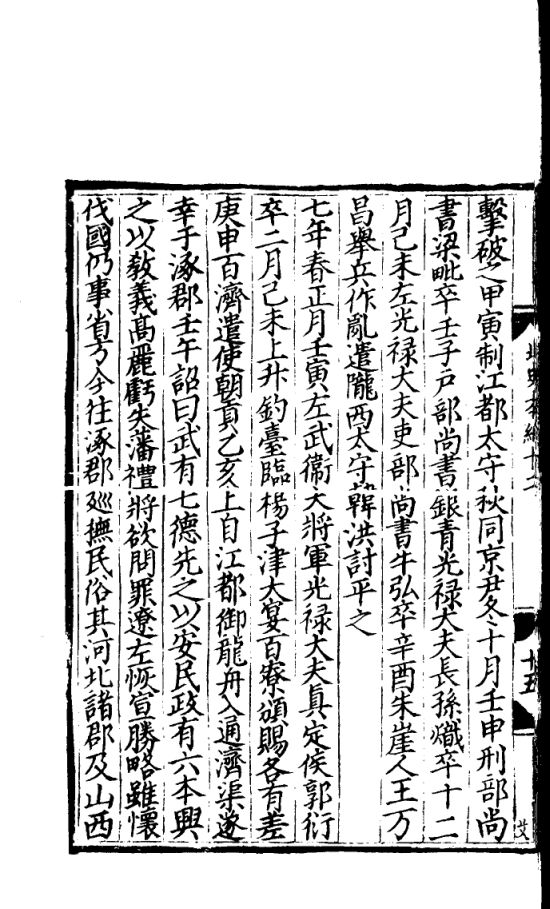 擊破之甲寅制江都太守秩同京尹冬十月壬申刑部尚
書梁毗卒壬子戸部尚書銀青光禄大夫長孫熾卒十二
月己未左光禄大夫吏部尚書牛弘卒辛酉朱崖人王万
昌舉兵作亂遣隴西太守韓洪討平之
七年春正月壬寅左武衛大將軍光禄大夫真定侯郭衍
卒二月己未上升釣臺臨楊子津大宴百寮頒賜各有差
庚申百濟遣使朝貢乙亥上自江都御龍舟入通濟渠遂
幸于涿郡壬午詔曰武有七德先之以安民政有六本興
之以敎義高麗虧失藩禮將欲問罪遼左恢宣勝略雖懷
伐國仍事省方今往涿郡廵撫民俗其河北諸郡及山西
十五